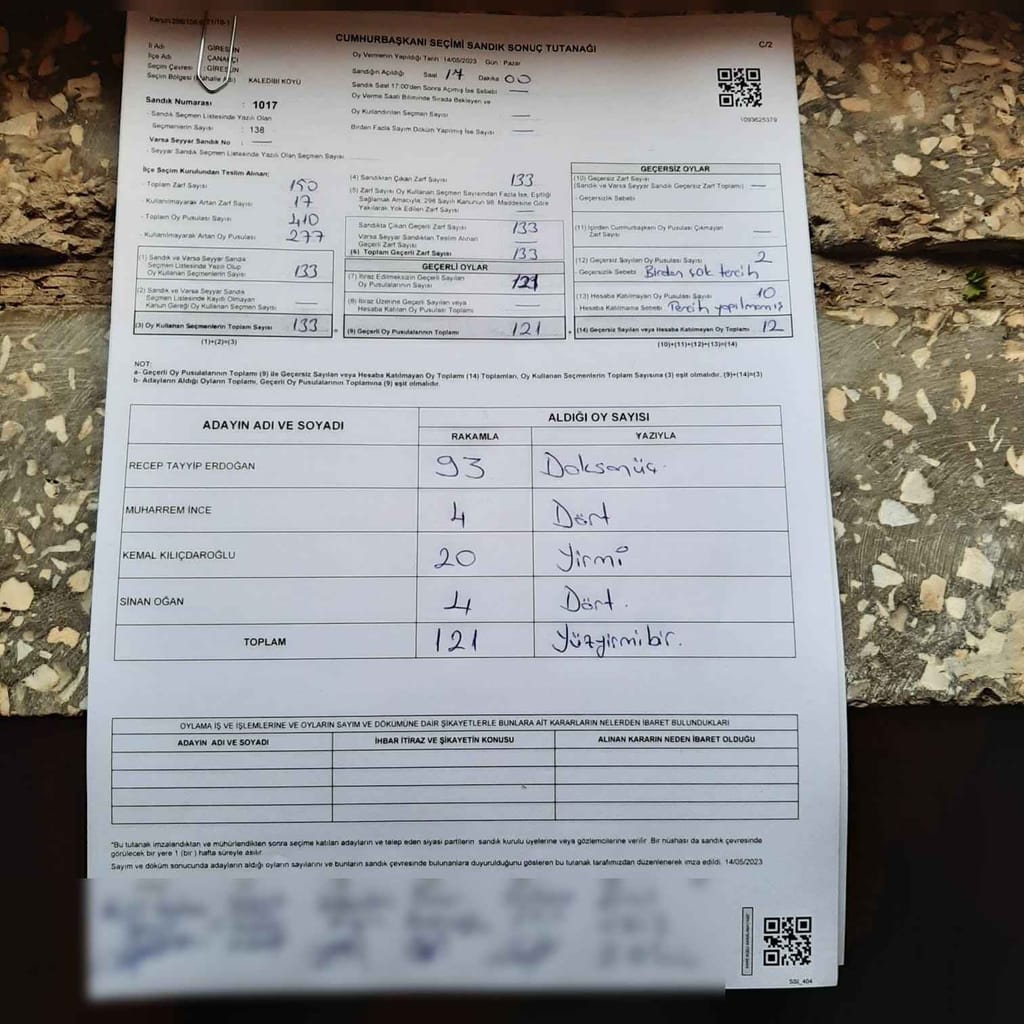 CUMHURBAŞKANI SEÇİMİ SANDIK SONUÇ TUTANAĞI
C/2
İli Adı : GİRESUN
İlçe Adı : ÇANAKÇI
Seçim Çevresi : GİRESUN
Seçim Bölgesi (Mahalle Adı) KALEDİBİ KÖYÜ
Sandık Numarası : 1017
- Sandık Seçmen Listesinde Yazılı Olan
Seçmenlerin Sayısı : 138
Varsa Seyyar Sandık No : —
- Seyyar Sandık Seçmen Listesinde Yazılı Olan Seçmen Sayısı
Oy Vermenin Yapıldığı Tarih : 14/05/2023 Gün : Pazar
Sandığın Açıldığı Saat 17 Dakika 00
Sandık Saat 17:00'den Sonra Açmış İse Sebebi —
Oy Verme Saati Bitiminde Sırada Bekleyen ve
Oy Kullandırılan Seçmen Sayısı —
Birden Fazla Sayım Döküm Yapılmış İse Sayısı —
1093625379
İlçe Seçim Kurulundan Teslim Alınan;
- Toplam Zarf Sayısı 150
- Kullanılmayarak Artan Zarf Sayısı 17
- Toplam Oy Pusulası Sayısı 410
- Kullanılmayarak Artan Oy Pusulası 277
(1) Sandık ve Varsa Seyyar Sandık
Seçmen Listesinde Yazılı Olup
Oy Kullanan Seçmenlerin Sayısı 133
(2) Sandık ve Varsa Seyyar Sandık
Seçmen Listesinde Kayıtlı Olmayan
Kanun Gereği Oy Kullanan Seçmen Sayısı —
(3) Oy Kullanan Seçmenlerin Toplam Sayısı 133
(1)+(2)=(3)
(4) Sandıktan Çıkan Zarf Sayısı 133
(5) Zarf Sayısı Oy Kullanan Seçmen Sayısından Fazla İse, Eşitliği
Sağlamak Amacıyla; 298 Sayılı Kanunun 98. Maddesine Göre
Yakılarak Yok Edilen Zarf Sayısı —
Sandıkta Çıkan Geçerli Zarf Sayısı 133
Varsa Seyyar Sandıktan Teslim Alınan
Geçerli Zarf Sayısı —
(6) Toplam Geçerli Zarf Sayısı 133
GEÇERLİ OYLAR
(7) İtiraz Edilmeksizin Geçerli Sayılan
Oy Pusulalarının Sayısı 121
(8) İtiraz Üzerine Geçerli Sayılan veya
Hesaba Katılan Oy Pusulası Toplamı —
(9) Geçerli Oy Pusulalarının Toplamı 121
GEÇERSİZ OYLAR
(10) Geçersiz Zarf Sayısı
(Sandık ve Varsa Seyyar Sandık Geçersiz Zarf Toplamı) —
- Geçersizlik Sebebi
(11) İçinden Cumhurbaşkanı Oy Pusulası Çıkmayan
Zarf Sayısı —
(12) Geçersiz Sayılan Oy Pusulası Sayısı 2
- Geçersizlik Sebebi Birden çok tercih
(13) Hesaba Katılmayan Oy Pusulası Sayısı 10
Hesaba Katılmama Sebebi Tercih yapılmamış
(14) Geçersiz Sayılan veya Hesaba Katılmayan Oy Toplamı 12
(10)+(11)+(12)+(13)=(14)
NOT:
a- Geçerli Oy Pusulalarının Toplamı (9) ile Geçersiz Sayılan veya Hesaba Katılmayan Oy Toplamı (14) Toplamları, Oy Kullanan Seçmenlerin Toplam Sayısına (3) eşit olmalıdır. (9)+(14)=(3)
b- Adayların Aldığı Oyların Toplamı, Geçerli Oy Pusulalarının Toplamına (9) eşit olmalıdır.
ADAYIN ADI VE SOYADI ALDIĞI OY SAYISI
RAKAMLA YAZIYLA
RECEP TAYYİP ERDOĞAN 93 Doksanüç.
MUHARREM İNCE 4 Dört
KEMAL KILIÇDAROĞLU 20 Yirmi
SİNAN OĞAN 4 Dört.
TOPLAM 121 Yüzyirmibir.
OYLAMA İŞ VE İŞLEMLERİNE VE OYLARIN SAYIM VE DÖKÜMÜNE DAİR ŞİKAYETLERLE BUNLARA AİT KARARLARIN NELERDEN İBARET BULUNDUKLARI
ADAYIN ADI VE SOYADI İHBAR İTİRAZ VE ŞİKAYETİN KONUSU ALINAN KARARIN NEDEN İBARET OLDUĞU
"Bu tutanak imzalandıktan ve mühürlendikten sonra seçime katılan adayların ve talep eden siyasi partilerin sandık kurulu üyelerine veya gözlemcilerine verilir. Bir nüshası da sandık çevresinde
görülecek bir yere 1 (bir) hafta süreyle asılır.
Sayım ve döküm sonucunda adayların aldığı oyların sayılarını ve bunların sandık çevresinde bulunanlara duyurulduğunu gösteren bu tutanak tarafımızdan düzenlenerek imza edildi. 14/05/2023
SSI_404